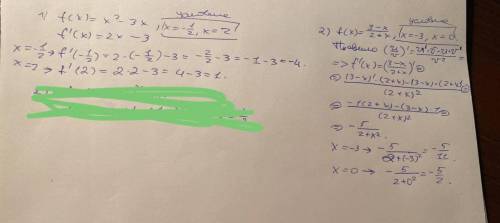 1) f(x) = x² 3x условие x = -1/2, x = 2
f'(x) = 2x - 3
x = -1/2 → f'(-1/2) = 2·(-1/2) - 3 = -2/2 - 3 = -1 - 3 = -4.
x = 2 → f'(2) = 2·2 - 3 = 4 - 3 = 1.
2) f(x) = (3-x)/(2+x), условие x = -3, x = 0.
Правило
=> f'(x) = ((3-x)/(2+x))' =
= ((3-x)'·(2+x) - (3-x)·(2+x)')/(2+x)² =
= (-1(2+x) - (3-x)·1)/(2+x)²
= -5/(2+x²)
x = -3 → -5/(2+(-3)²) = -5/11
x = 0 → -5/(2+0²) = -5/2.